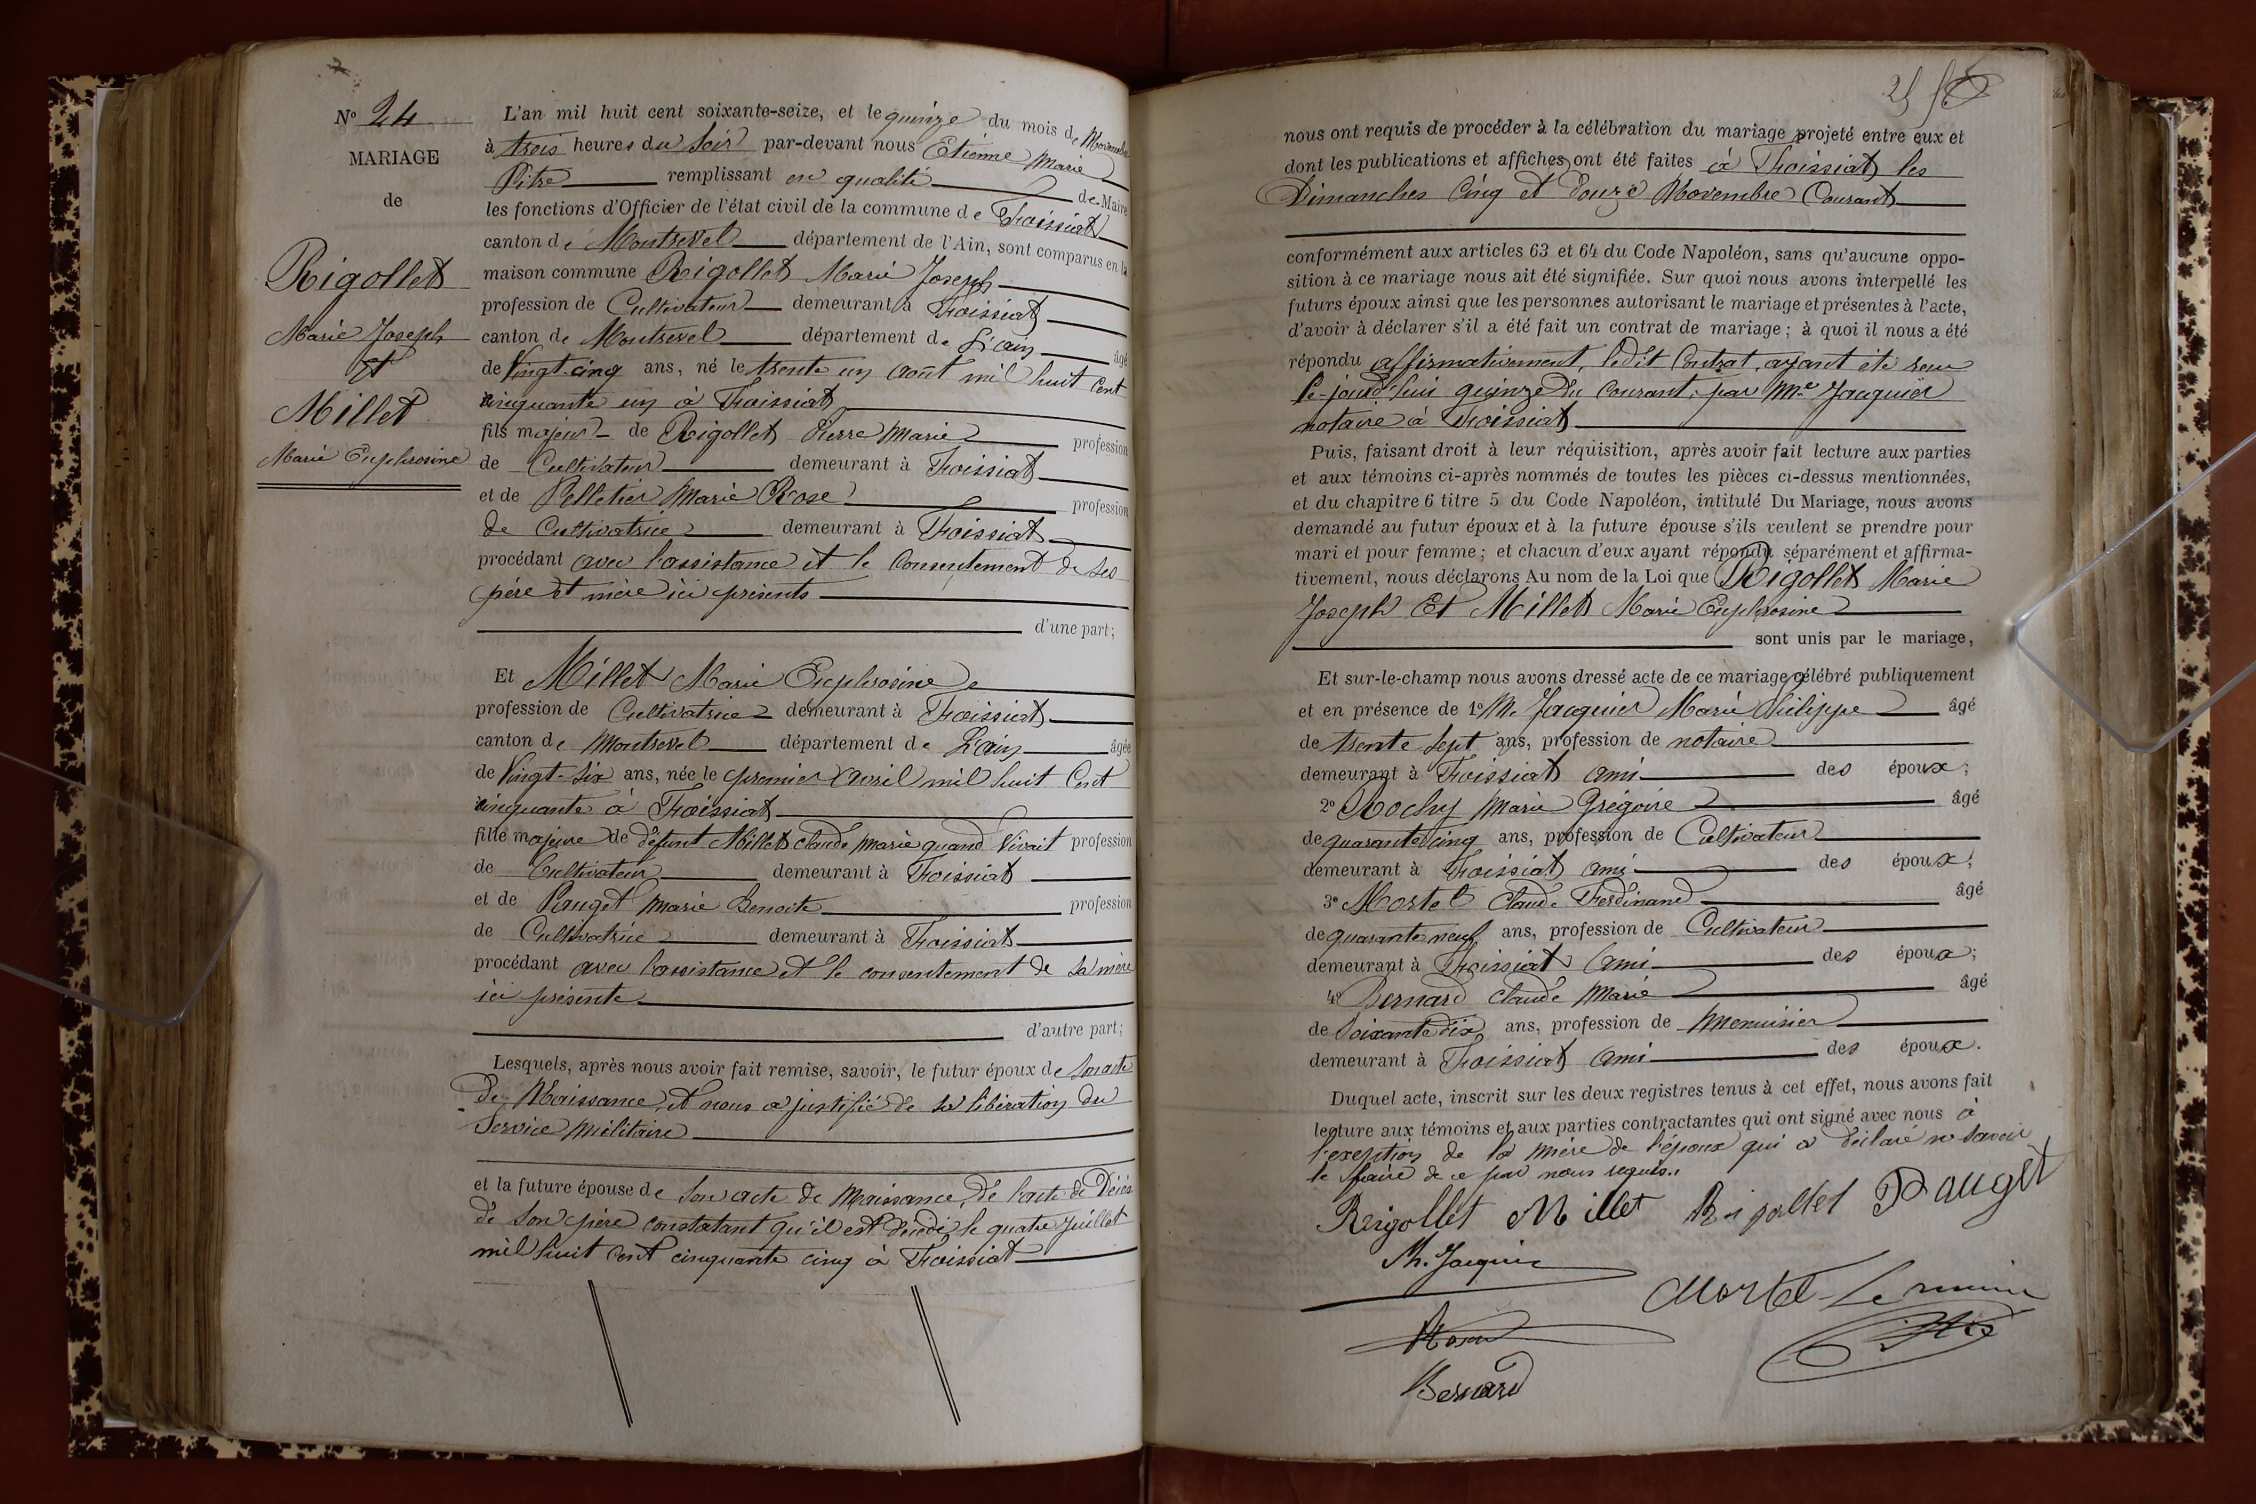 Nº 24
MARIAGE
de
Rigollet
Marie Joseph
Et
Millet
Marie Euphrosine
L'an mil huit cent soixante-seize, et le quinze du mois de Novembre
à trois heures du Soir par-devant nous Etienne Marie
Pitre remplissant en qualité de Maire
les fonctions d'Officier de l'état civil de la commune de Foissiat
canton de Montrevel département de l'Ain, sont comparus en la
maison commune Rigollet Marie Joseph
profession de Cultivateur demeurant à Foissiat
canton de Montrevel département de L'ain âgé
de Vingt-cinq ans, né le trente un août mil huit cent
cinquante un à Foissiat
fils majeur de Rigollet Pierre Marie profession
de Cultivateur demeurant à Foissiat
et de Pelletier Marie Rose profession
de Cultivatrice demeurant à Foissiat
procédant avec l'assistance et le Consentement de ses
père et mère ici présents
d'une part;
Et Millet Marie Euphrosine
profession de Cultivatrice demeurant à Foissiat
canton de Montrevel département de L'ain âgée
de Vingt-six ans, née le premier avril mil huit Cent
cinquante à Foissiat
fille majeure de défunt Millet Claude Marie quand Vivait profession
de Cultivateur demeurant à Foissiat
et de Pauget Marie Benoite profession
de Cultivatrice demeurant à Foissiat
procédant avec l'assistance et le consentement de sa mère
ici présente
d'autre part;
Lesquels, après nous avoir fait remise, savoir, le futur époux de Son acte
de Naissance, et nous a justifié de sa libération du
Service militaire
et la future épouse de Son acte de Naissance, de l'acte de Décès
de Son père constatant qu'il est décédé le quatre Juillet
mil huit cent cinquante cinq à Foissiat
25
nous ont requis de procéder à la célébration du mariage projeté entre eux et
dont les publications et affiches ont été faites à Foissiat les
Dimanches Cinq et Douze Novembre Courant
conformément aux articles 63 et 64 du Code Napoléon, sans qu'aucune oppo-
sition à ce mariage nous ait été signifiée. Sur quoi nous avons interpellé les
futurs époux ainsi que les personnes autorisant le mariage et présentes à l'acte,
d'avoir à déclarer s'il a été fait un contrat de mariage; à quoi il nous a été
répondu affirmativement, ledit Contrat, ayant été reçu
ce-jourd'hui quinze du courant, par Me Jacquier
notaire à Foissiat
Puis, faisant droit à leur réquisition, après avoir fait lecture aux parties
et aux témoins ci-après nommés de toutes les pièces ci-dessus mentionnées,
et du chapitre 6 titre 5 du Code Napoléon, intitulé Du Mariage, nous avons
demandé au futur époux et à la future épouse s'ils veulent se prendre pour
mari et pour femme; et chacun d'eux ayant répondu séparément et affirma-
tivement, nous déclarons Au nom de la Loi que Rigollet Marie
Joseph Et Millet Marie Euphrosine
sont unis par le mariage,
Et sur-le-champ nous avons dressé acte de ce mariage célébré publiquement
et en présence de 1º M. Jacquier Marie Philippe âgé
de trente sept ans, profession de notaire
demeurant à Foissiat ami des époux;
2º Rochy Marie Grégoire âgé
de quarante cinq ans, profession de Cultivateur
demeurant à Foissiat ami des époux;
3º Mortel Claude Ferdinand âgé
de quarante neuf ans, profession de Cultivateur
demeurant à Foissiat ami des époux;
4º Bernard Claude Marie âgé
de Soixante dix ans, profession de Menuisier
demeurant à Foissiat ami des époux.
Duquel acte, inscrit sur les deux registres tenus à cet effet, nous avons fait
lecture aux témoins et aux parties contractantes qui ont signé avec nous à
l'exeption de la mère de l'époux qui a déclaré ne Savoir
le faire de ce par nous requis..
Rigollet Millet Rigollet Pauget
Ph. Jacquier
Mortel Le maire
Bernard